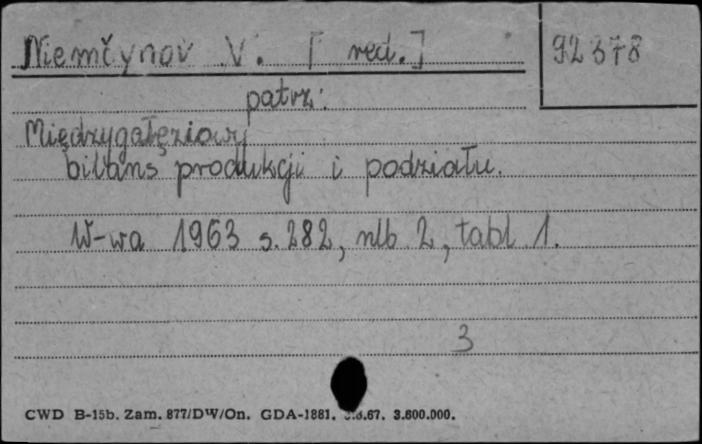 Niemčynov V. [red.]
92378
patrz:
Międzygałęziowy
bilans produkcji i podziału.
W-wa 1963 s. 282, nlb 2, tabl 1.
3
CWD B-15b. Zam. 877/DW/On. GDA-1881. 3.600.000.